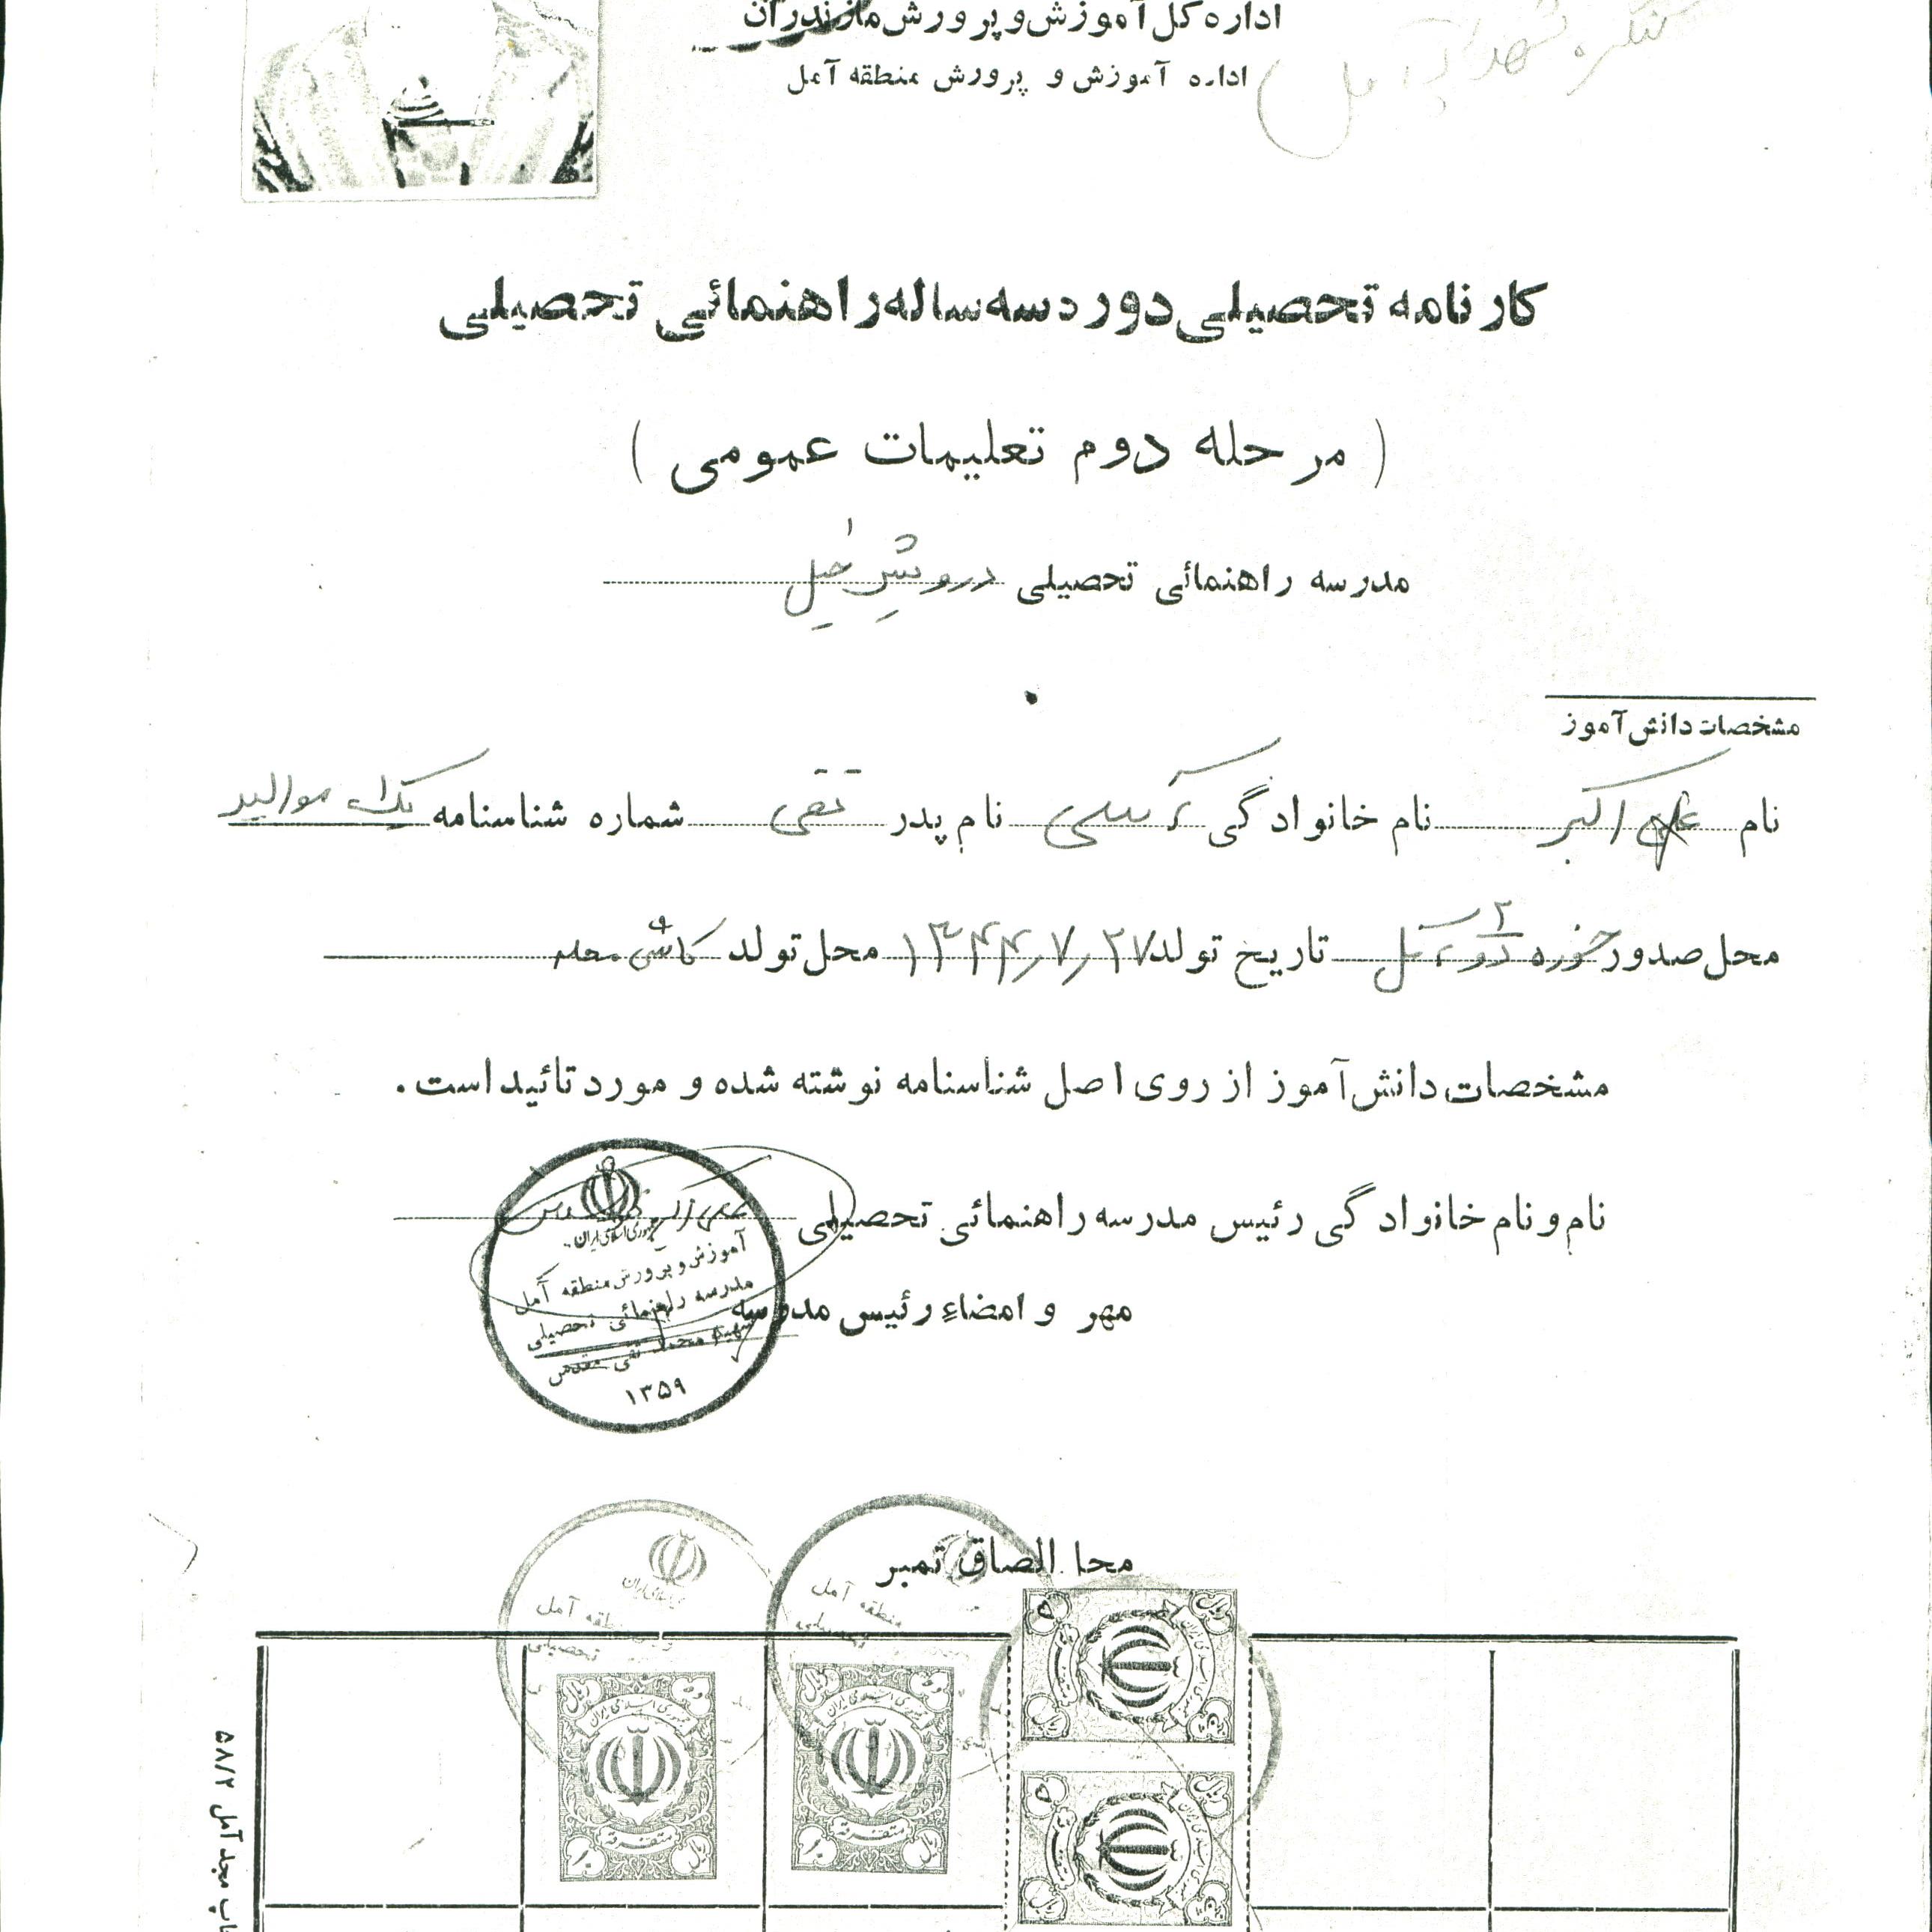 اداره کل آموزش و پرورش مازندران
اداره آموزش و پرورش منطقه آمل
کنگره شهدای آمل
کارنامه تحصیلی دوره سه ساله راهنمائی تحصیلی
( مرحله دوم تعلیمات عمومی )
مدرسه راهنمائی تحصیلی درویش خیل
مشخصات دانش آموز
نام علی اکبر نام خانوادگی نام پدر تقی شماره شناسنامه یک موالید
محل صدور حوزه دو آمل تاریخ تولد ۱۳۴۴٫۷٫۲۷ محل تولد کاشی محله
مشخصات دانش آموز از روی اصل شناسنامه نوشته شده و مورد تائید است .
نام و نام خانوادگی رئیس مدرسه راهنمائی تحصیلی
جمهوری اسلامی ایران
آموزش و پرورش منطقه آمل
مدرسه راهنمائی تحصیلی
شهید محمد تقی مقدس
۱۳۵۹
مهر و امضاء رئیس مدرسه
محل الصاق تمبر
منطقه آمل
منطقه آمل
تحصیلی
جمهوری اسلامی ایران
متفرقه
جمهوری اسلامی ایران
متفرقه
چاپ مجد آمل ۵۸/۲